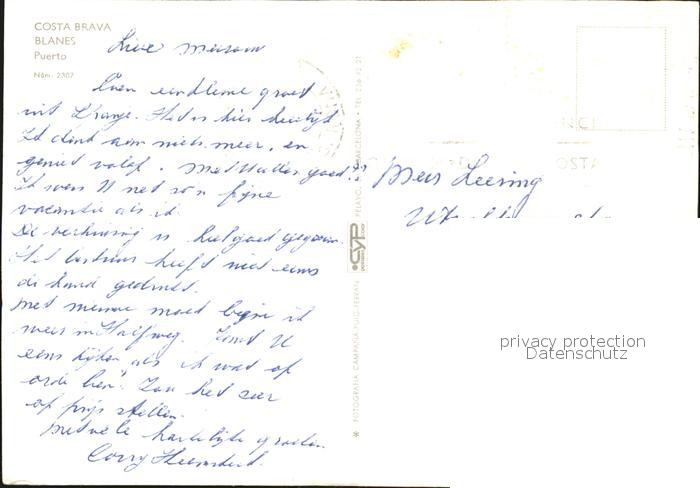 COSTA BRAVA
BLANES
Puerto
Núm. 2307
Lieve mevrouw
Even een kleine groet
uit Spanje. Het is hier heerlijk
Ik denk aan niets meer, en
geniet volop. Met U alles goed?
Ik wens U net zo'n fijne
vacantie als ik.
De verhuizing is heel goed gegaan.
Het bestuur heeft niet eens
de hand gedrukt.
Met nieuwe moed begin ik
weer in Halfweg. Komt U
eens kijken als ik wat op
orde ben? Zou het zeer
op prijs stellen.
Met vele hartelijke groeten
Corry Heemskerk.
Mevr Leering
CYP
PELAYO, BARCELONA • TEL. 226 92 21
* FOTOGRAFIA CAMPAÑA PUIG-FERRAN
privacy protection
Datenschutz